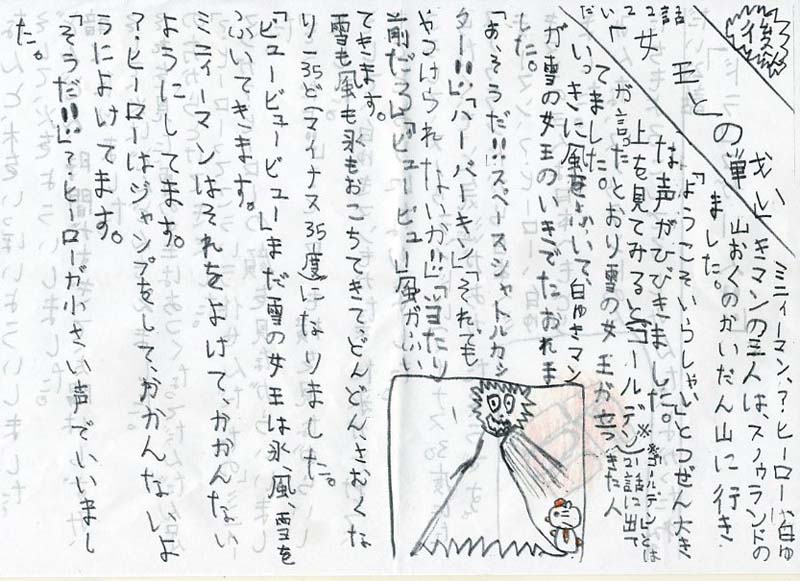 後
2話 女王との戦い
ミニィーマン、?ヒーロー、白ゆ
きマンの三人は、スノゥランドの
山おくのかいだん山に行き
ました。
「ようこそいらっしゃい」とつぜん大き
な声がひびきました。
※ゴールデンとは
2話に出て
きた人
上を見てみると、ゴールデン※
が言ったとおり雪の女王が立っ
てました。
いっきに風をふいて、白ゆきマン
が雪の女王のいきでたおれま
した。
「お、そうだ!!スペースシャトルカッ
ター!!」「ハーパーキン」「それでも
やっつけられないか!!」「当たり
前だろ」「ビュービュー」風がふい
てきます。
雪も風も氷もおこってきて、どんどん、さむくな
り-35ど(マイナス35度)になりました。
「ビュービュービュー」まだ雪の女王は氷、風、雪を
ふいてきます。
ミニィーマンはそれをよけて、かかんない
ようにしてます。
?・ヒーローはジャンプをして、かかんないよ
うによけてます。
「そうだ!!」?・ヒーローが小さい声でいいまし
た。